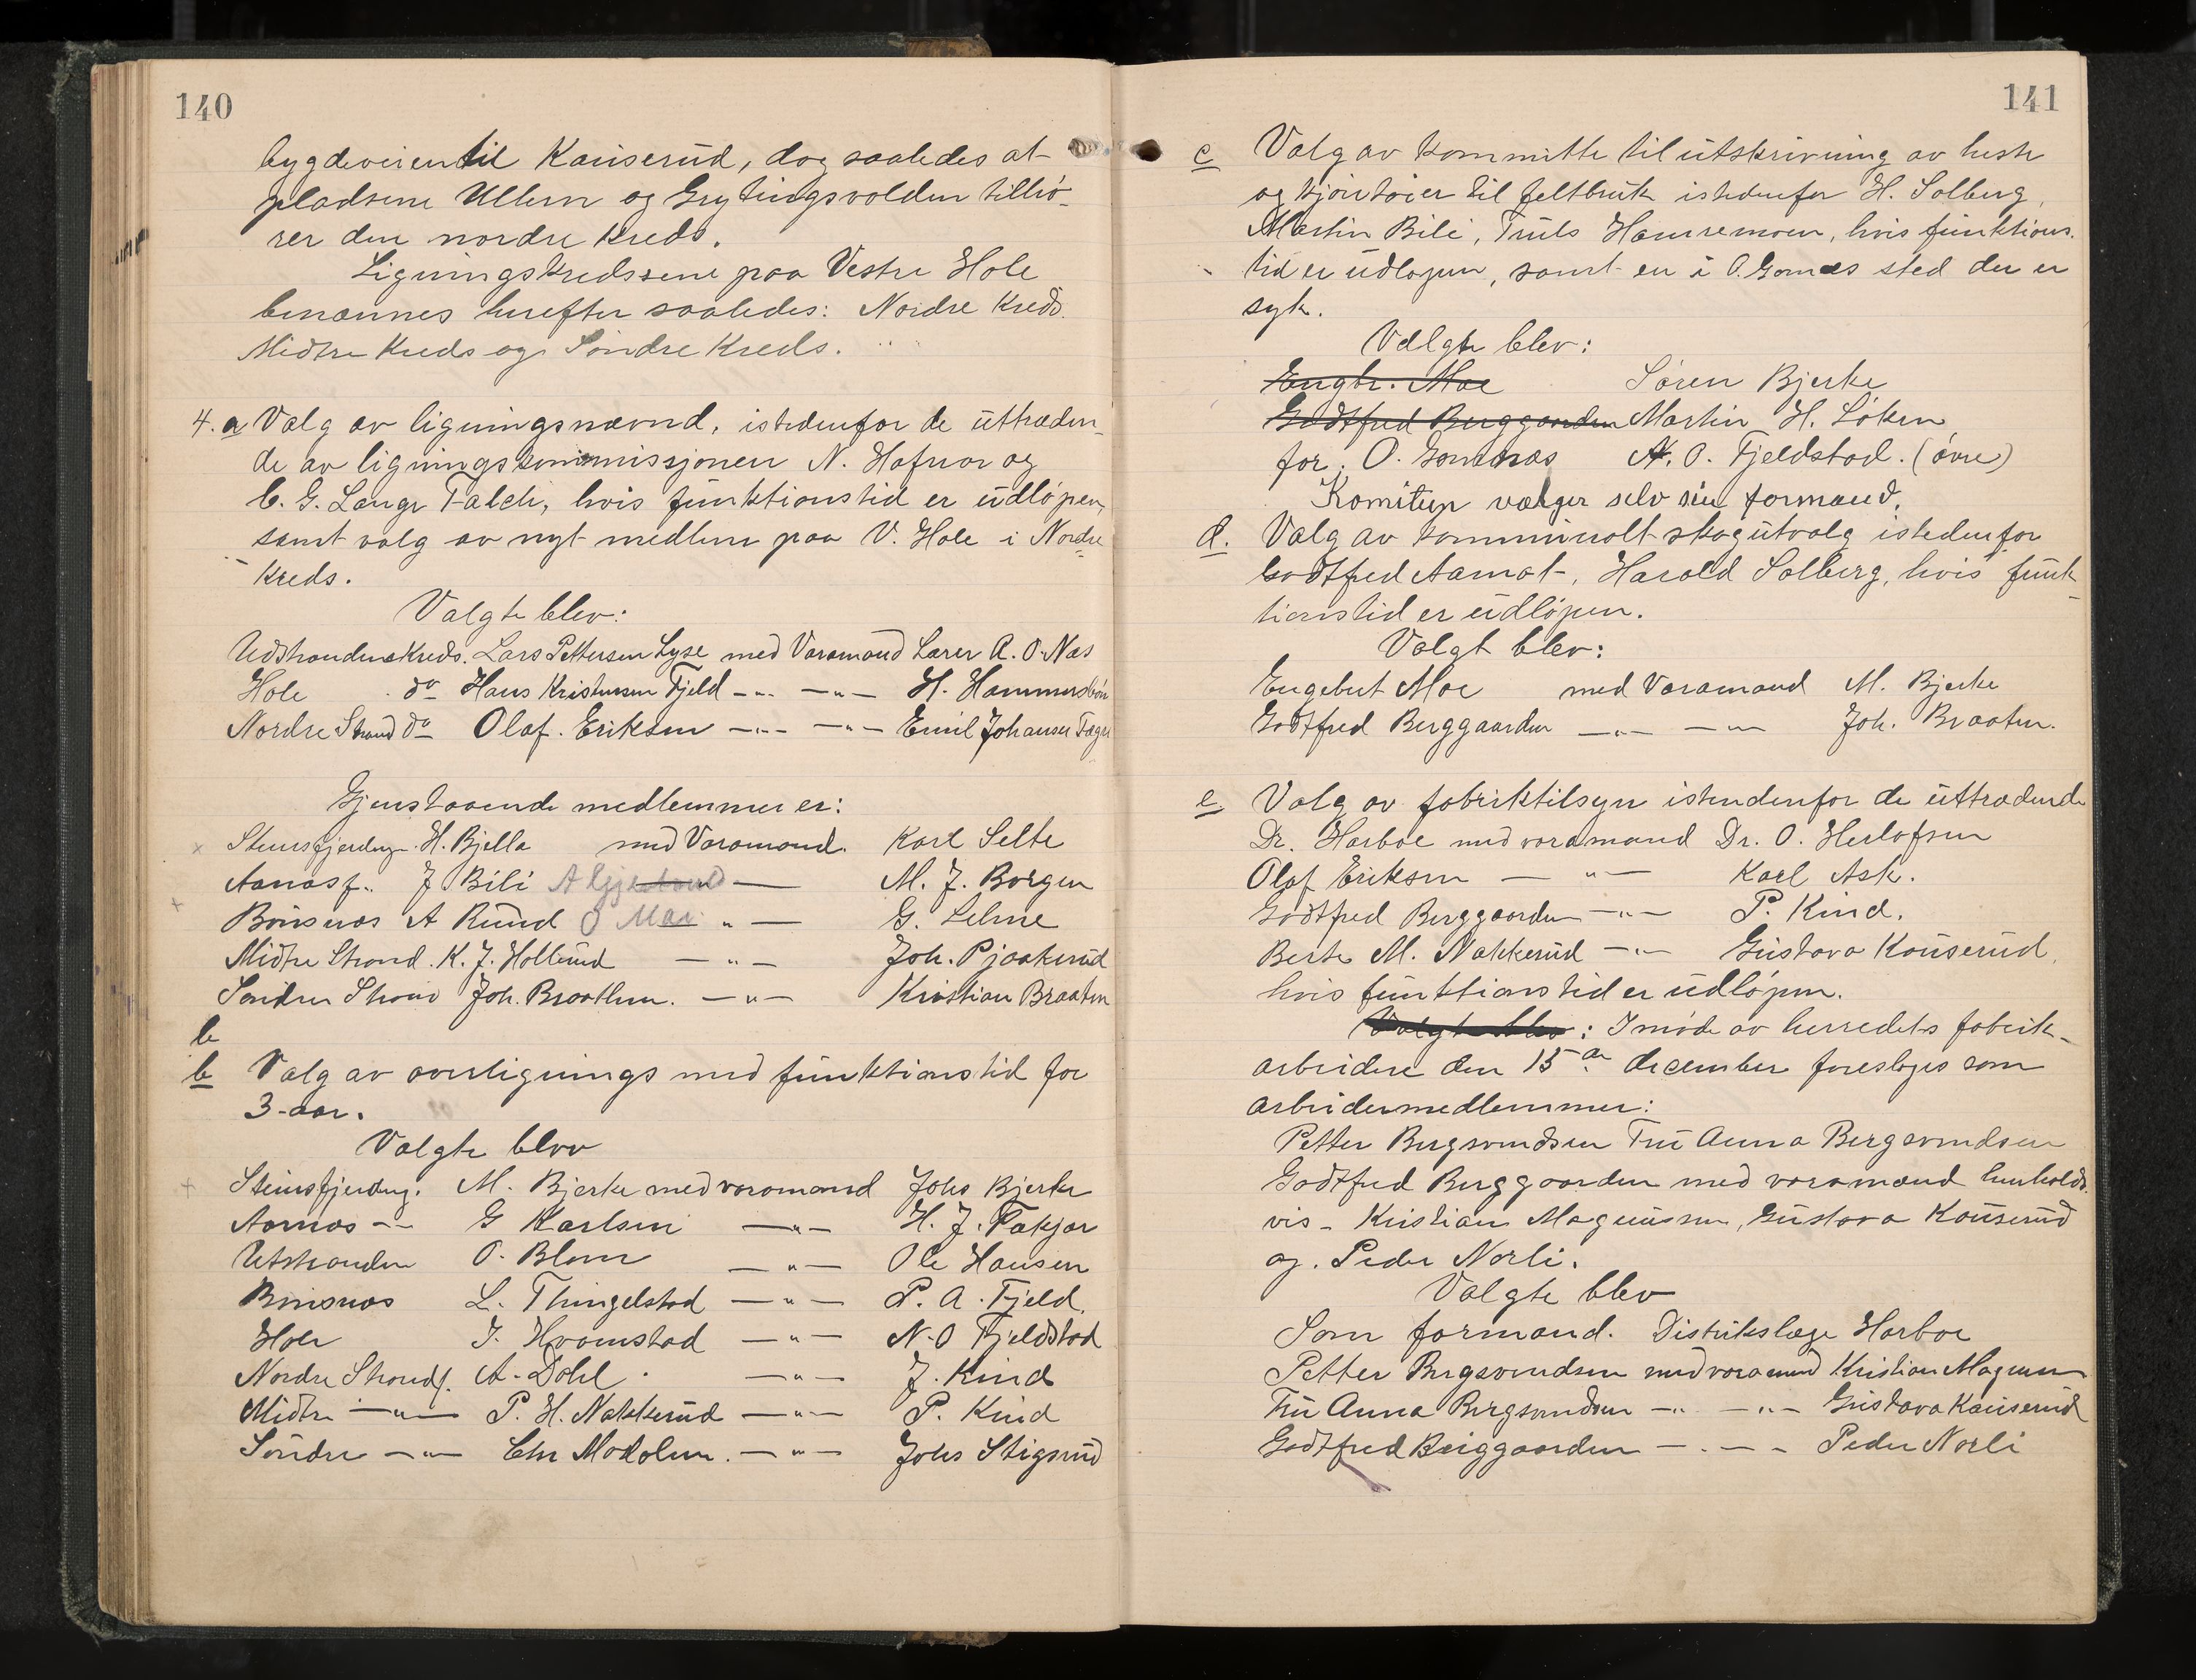 140
bygdeveien til Kauserud, dog saaledes at
pladsene Ullern og Grytingsvolden tilhö-
rer den nordre kreds.
Ligningskredssene paa Vestre Hole
benævnes herefter saaledes: Nordre Kreds
Midtre Kreds og Söndre Kreds.
4. a Valg av ligningsnævnd, istedenfor de uttræden-
de av ligningskommissjonen N. Hafnor og
C. G. Lange Falch, hvis funktionstid er udlöpen,
samt valg av nyt medlem paa V. Hole i Nordre
Kreds.
Valgte blev:
Udstrandens Kreds. Lars Pettersen Lyse med Varamand Lærer A. O. Næs
Hole do Hans Kristensen Fjeld -"- -"- H. Hammersbön
Nordre Strand do Olaf Eriksen -"- -"- Emil Johansen
Gjenstaaende medlemmer er:
x Stensfjerdingn. H. Bjella med Varamand. Karl Selte
Aanæsf. J Bili -"- M. J. Borgen
x Bönsnæs A Rund O Moe -"- G. Lehne
Midtre Strand. K. J. Hollerud -"- Joh. Pjaakerud
Söndre Strand Joh. Braathen. -"- Kristian Braaten
b
b Valg av overlignings med funktionstid for
3-aar.
Valgte blev
+ Steinsfjerding. M. Bjerke med varamand Johs Bjerke
Aarnæs -"- G Karlsen -"- H. J. Fakjar
Utstranden O. Blom -"- Ole Hansen
Bönsnæs L. Thingelstad -"- P. A. Fjeld.
Hole J. Hvamstad -"- N. O Fjeldstad
Nordre Strandf. A. Dahl -"- J. Kind
Midtre -"- P. H. Nakkerud -"- P. Kind
Söndre -"- Chr Modalen. -"- Johs Stigsrud
141
c Valg av kommitte til utskrivning av heste
og kjöretöier til feltbruk istedenfor H. Solberg,
Martin Bili, Truls Hamremoen, hvis funktions-
tid er udlöpen, samt en i O. Gomnæs sted der er
syk.
Valgte blev:
Engbr. Moe Sören Bjerke
Godtfred Berggaarden Martin H. Löken
for O. Gomnæs N. O. Fjeldstad. (övre)
Komiteen vælger selv sin formand.
d. Valg av kommunalt skogutvalg istedenfor
Godtfred Aamot, Harald Solberg, hvis funk-
tionstid er udlöpen.
Valgt blev:
Engebret Moe med Varamand M. Bjerke
Godtfred Berggaarden -"- -"- Joh. Braaten.
e Valg av fabriktilsyn istendenfor de uttrædende
Dr. Harboe med varamand Dr. O. Herlofsen
Olaf Eriksen -"- Karl Ask.
Godtfred Berggaarden -"- P. Kind.
Berte M. Nakkerud -"- Gustava Kauserud,
hvis funktionstid er udlöpen.
Valgte blev: I möde av herredets fabrik-
arbeidere den 15de december foresloges som
arbeidermedlemmer:
Petter Bergsvendsen Fru Anna Bergsvendsen
Godtfred Berggaarden med varamænd henholds-
vis - Kristian Magnussen, Gustava Kauserud
og Peder Norli.
Valgte blev
Som formand. Distrikslæge Harboe
Petter Bergsvendsen med varamand Kristian Magnussen
Fru Anna Bergsvendsen -"- -"- Gustava Kauserud
Godtfred Berggaarden -"- - Peder Norli